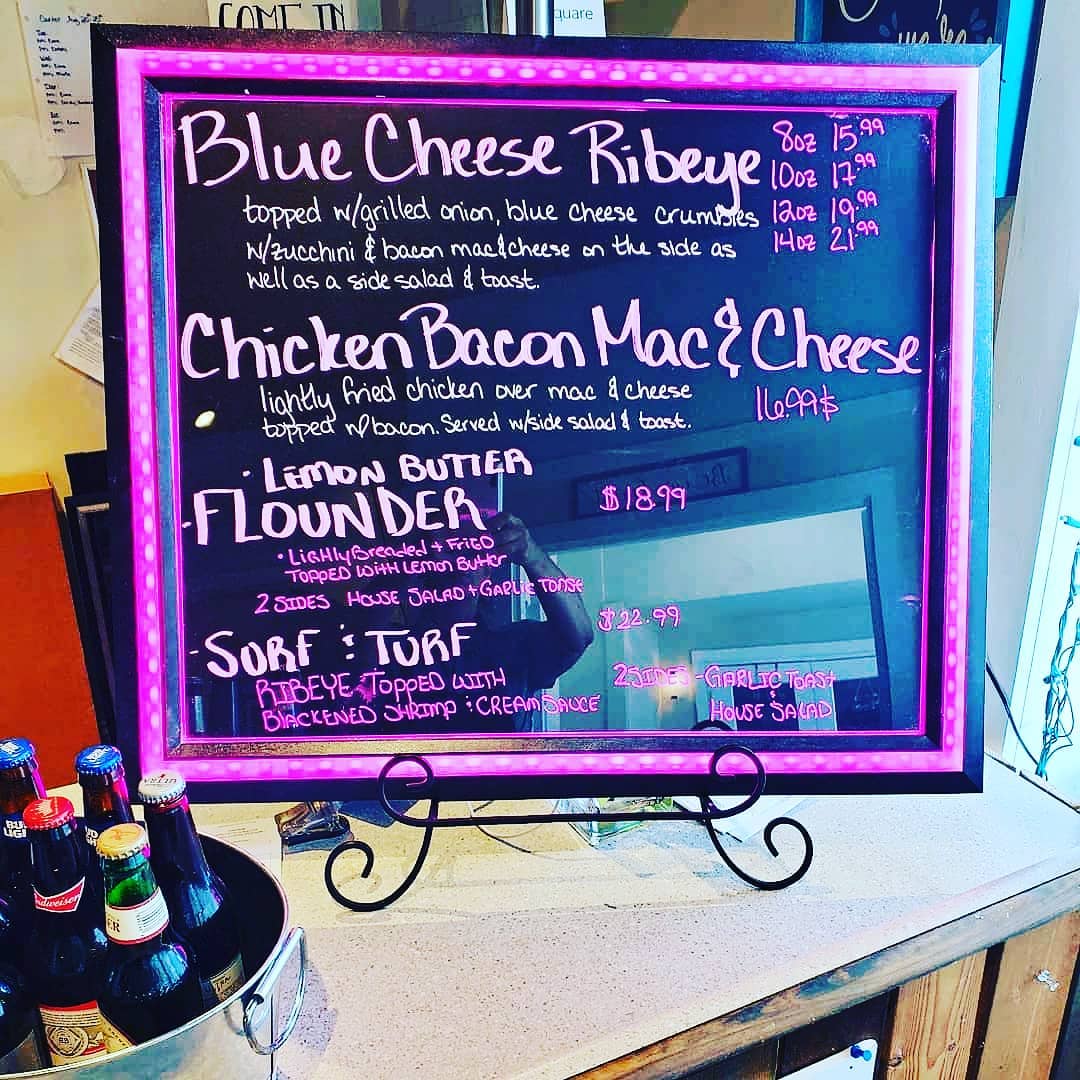 COME IN
square
Blue Cheese Ribeye
8oz 15.99
10oz 17.99
12oz 19.99
14oz 21.99
topped w/grilled onion, blue cheese crumbles
w/zucchini & bacon mac&cheese on the side as
well as a side salad & toast.
Chicken Bacon Mac & Cheese
lightly fried chicken over mac & cheese
topped w/ bacon. Served w/side salad & toast.
16.99$
• LEMON BUTTER
-FLOUNDER
$18.99
• LIGHTLY Breaded + FRIED
TOPPED WITH LEMON BUTTER
2 SIDES HOUSE SALAD + GARLIC TOAST
- SURF & TURF
$22.99
RIBEYE TOPPED WITH
BLACKENED SHRIMP & CREAM SAUCE
2 SIDES - GARLIC TOAST
&
HOUSE SALAD
BUD
LIGHT
Budweiser
ULTRA